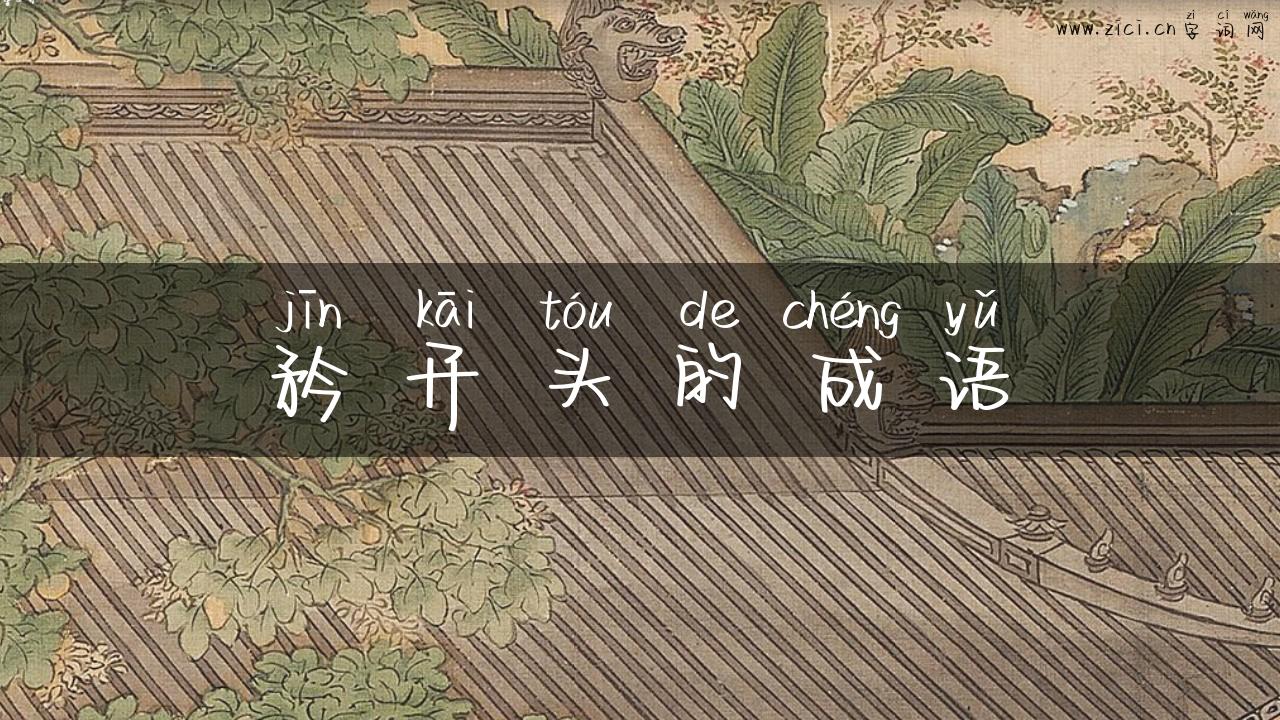 zì cí wǎng
www.zici.cn 字词网
jīn kāi tóu de chéng yǔ
矜开头的成语